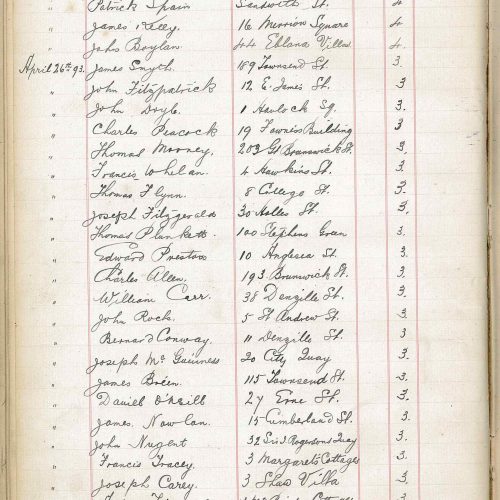 " Patrick Spain Sandwith St. 4
" James Kelly 16 Merrion Square 4
" John Boylan 44 Eblana Villas 4.
April 26th 93. James Smyth 189 Townsend St. 3.
" John Fitzpatrick 12 E. James St. 3.
" John Doyle 1 Havlock Sq. 3
" Charles Peacock 19 Building 3
" Thomas Mooney. 203 Gt Brunswick St. 3.
" Francis Whelan. 4 Hawkins St. 3.
" Thomas Flynn. 8 College St. 3.
" Joseph Fitzgerald 30 Holles St. 3.
" Thomas Plunkett. 100 Stephens Green 3.
" Edward Preston 10 Anglesea St. 3.
" Charles Allen. 193 Brunswick St. 3.
" William Carr. 38 Denzille St. 3.
" John Rock. 5 St Andrew St. 3.
" Bernard Conway. 11 Denzille St. 3.
" Joseph Mc Guinness 20 City Quay 3.
" James Breen. 115 Townsend St. 3.
" Daniel O'Neill 27 Erne St. 3.
" James. Nowlan. 15 Cumberland St. 3.
" John Nugent 32 Sir J Rogersons Quay 3.
" Francis Tracey. 3 Margarets Cottages 3.
" Joseph Carey. 3 Shaw Villa 3.